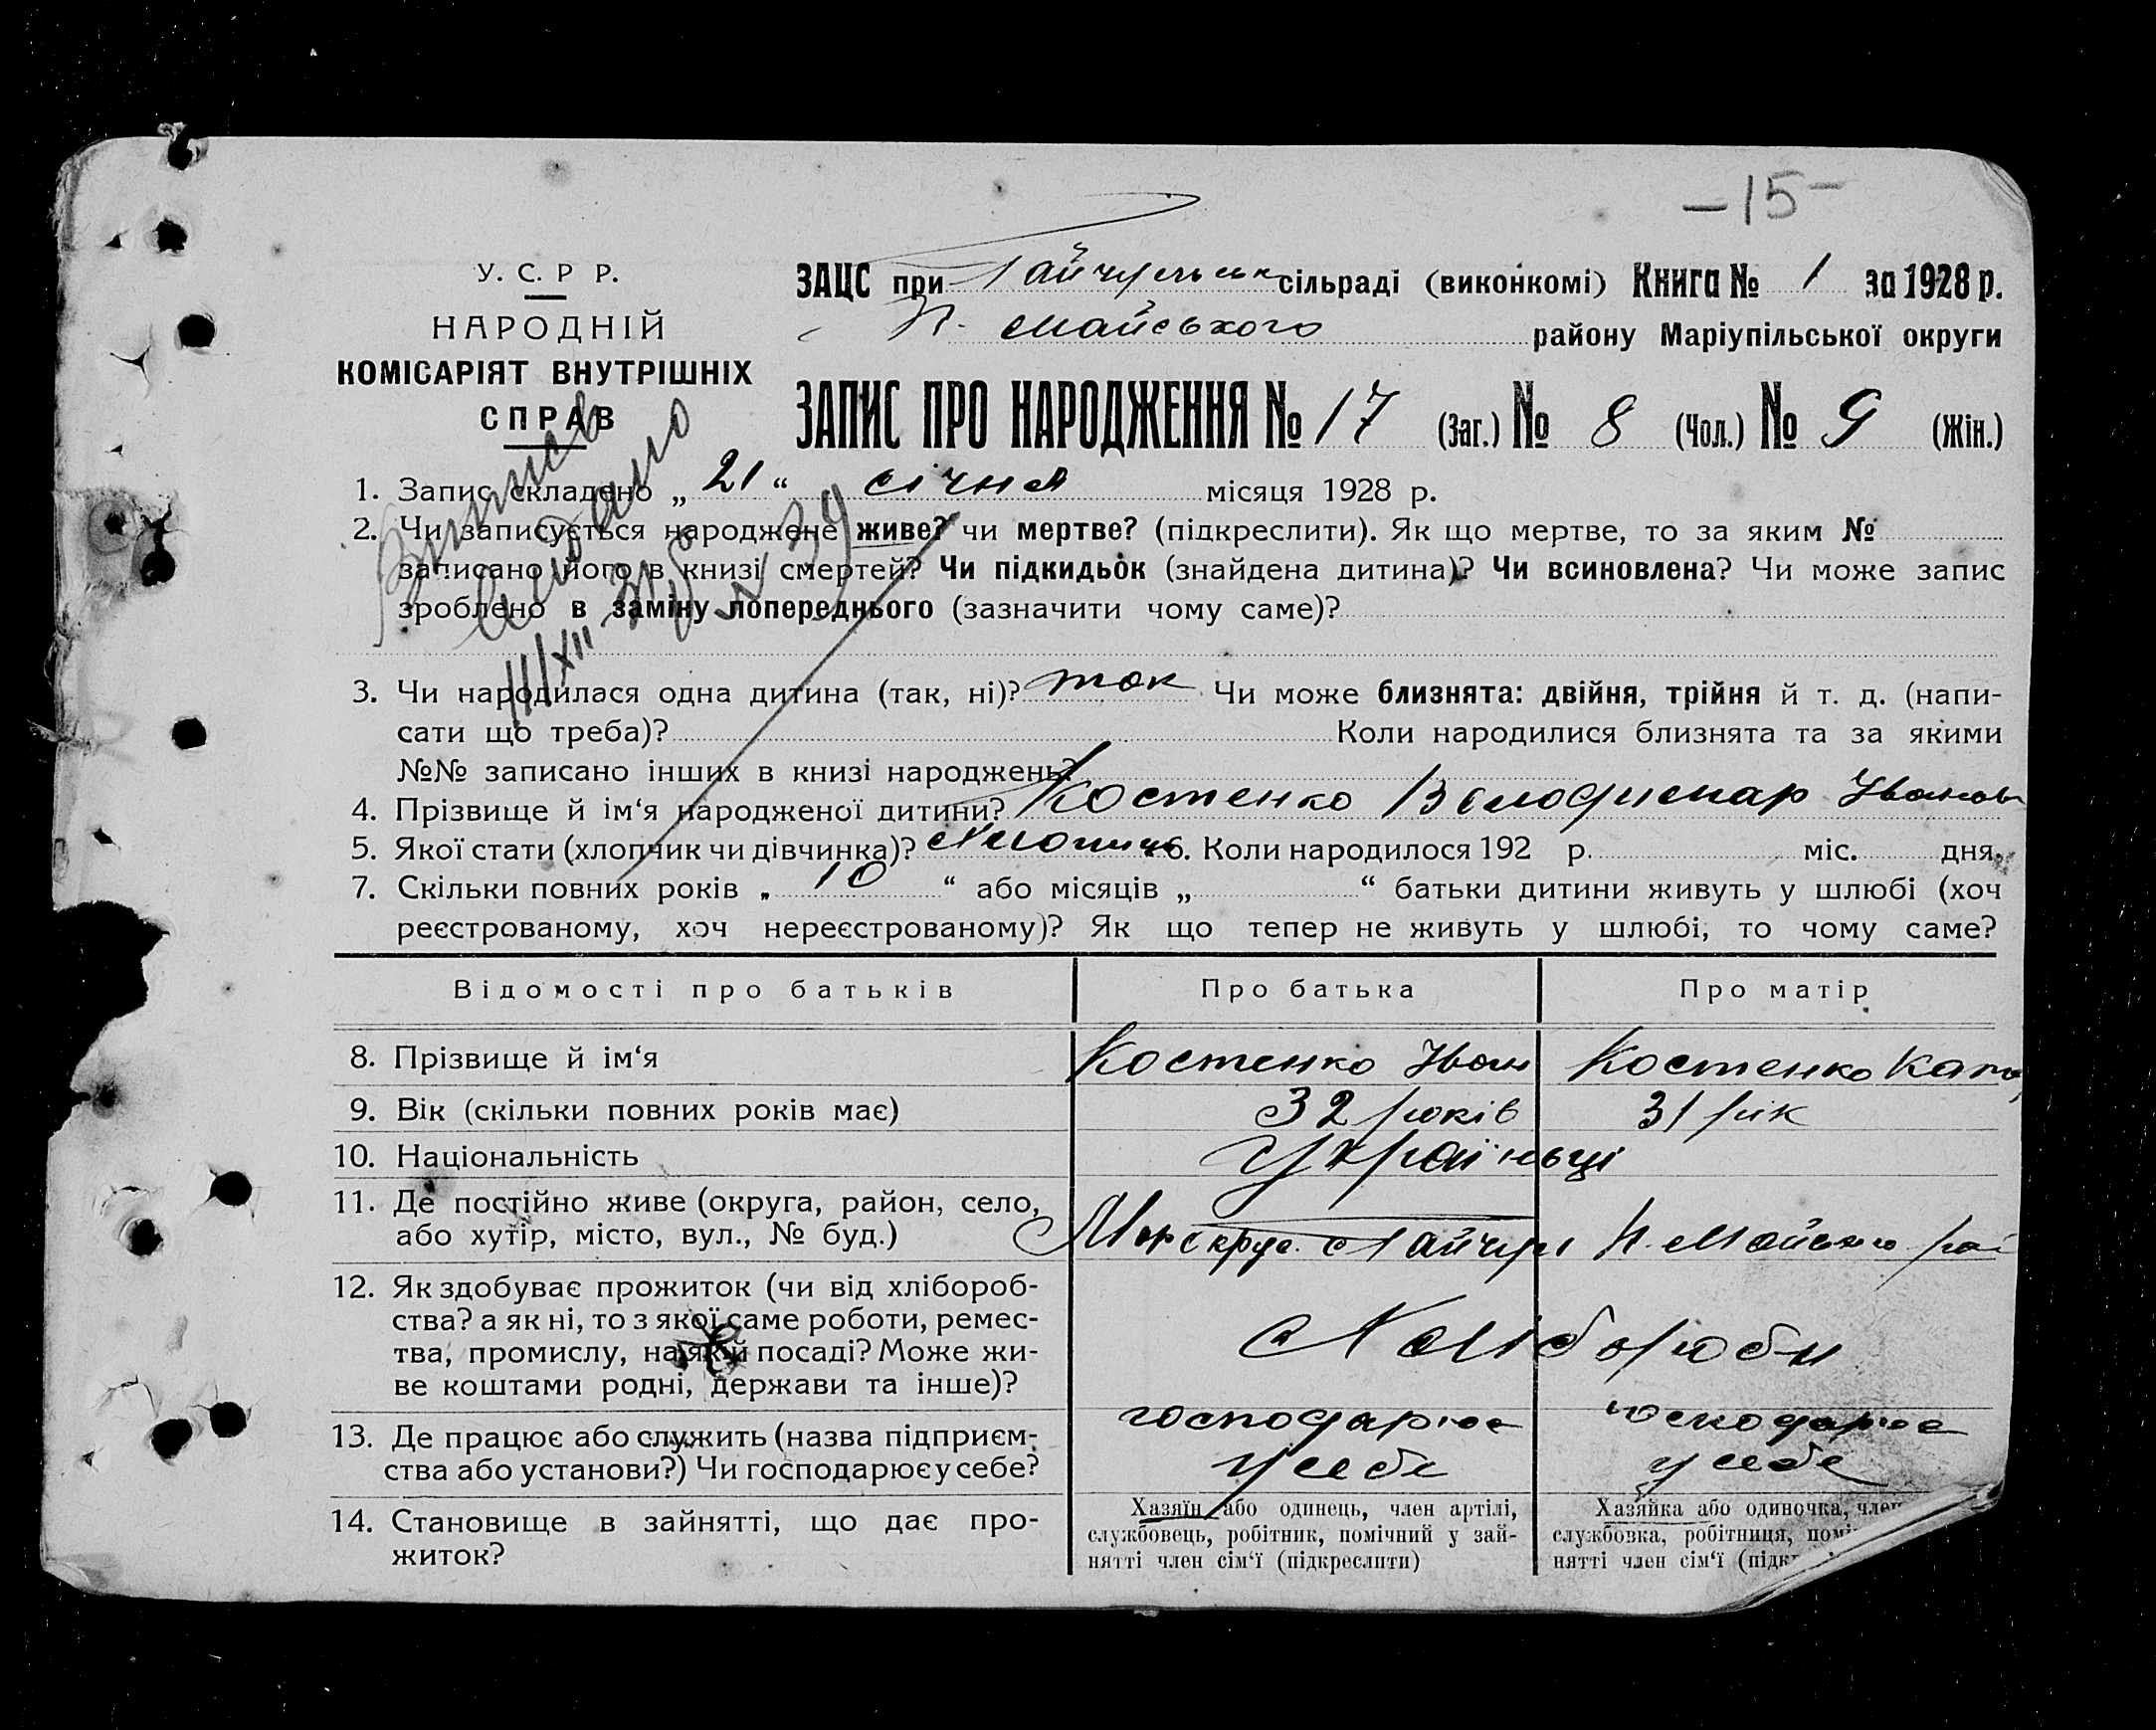 -15-
У. С. Р Р.
НАРОДНІЙ
КОМІСАРІЯТ ВНУТРІШНІХ
СПРАВ
ЗАЦС при Гайчульськ сільраді (виконкомі) Книга № 1 за 1928 р.
Н. Майського району Маріупільської округи
ЗАПИС ПРО НАРОДЖЕННЯ № 17 (Заг.) № 8 (Чол.) № 9 (Жін.)
Видано
1. Запис складено „21“ січня місяця 1928 р.
2. Чи записується народжене живе? чи мертве? (підкреслити). Як що мертве, то за яким №
записано його в книзі смертей? Чи підкидьок (знайдена дитина)? Чи всиновлена? Чи може запис
зроблено в заміну попереднього (зазначити чому саме)?
3. Чи народилася одна дитина (так, ні)? так Чи може близнята: двійня, трійня й т. д. (напи-
сати що треба)? Коли народилися близнята та за якими
№№ записано інших в книзі народжень?
4. Прізвище й ім‘я народженої дитини? Костенко Володимар Іванов
5. Якої стати (хлопчик чи дівчинка)? 6. Коли народилося 192 р. міс. дня.
7. Скільки повних років „10“ або місяців „ “ батьки дитини живуть у шлюбі (хоч
реєстрованому, хоч нереєстрованому)? Як що тепер не живуть у шлюбі, то чому саме?
Відомості про батьків Про батька Про матір
8. Прізвище й ім‘я Костенко Іван Костенко Кат
9. Вік (скільки повних років має) 32 років 31 рік
10. Національність Україньці
11. Де постійно живе (округа, район, село,
або хутір, місто, вул., № буд.) Мар округ. Гайчул Н. Майського рай
12. Як здобуває прожиток (чи від хлібороб-
ства? а як ні, то з якої саме роботи, ремес-
тва, промислу, на якій посаді? Може жи-
ве коштами родні, держави та інше)?
Хліборобы
13. Де працює або служить (назва підприєм-
ства або установи?) Чи господарює у себе?
господарює господарює
у себе у себе
14. Становище в зайнятті, що дає про-
житок?
Хазяїн або одинець, член артілі,
службовець, робітник, помічний у зай-
нятті член сім‘ї (підкреслити)
Хазяйка або одиночка, член
службовка, робітниця, помі
нятті член сім‘ї (підк